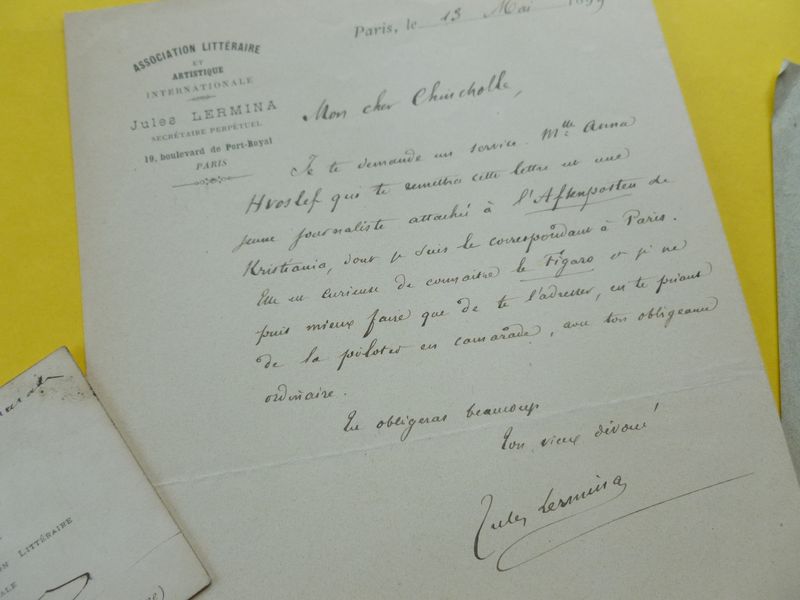 ASSOCIATION LITTÉRAIRE
ET
ARTISTIQUE
INTERNATIONALE
Jules LERMINA
SECRÉTAIRE PERPÉTUEL
19, boulevard de Port-Royal
PARIS
Paris, le 13 Mai 1899
Mon cher Chincholle,
Je te demande un service. Mlle Anna
Hvoslef qui te remettra cette lettre est une
jeune journaliste attachée à l'Aftenposten de
Kristiania, dont je suis le correspondant à Paris.
Elle est curieuse de connaitre le Figaro et je ne
puis mieux faire que de te l'adresser, en te priant
de la piloter en camarade, avec ton obligeance
ordinaire.
Tu obligeras beaucoup
Ton vieux dévoué
Jules Lermina
LITTÉRAIRE